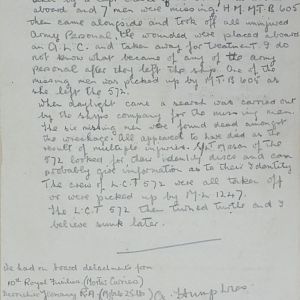 aboard and 7 men were missing. H.M. M.T.B 605
then came alongside and took off all uninjured
Army Personal, the wounded were placed aboard
an A.L.C. and taken away for treatment. I do
not know what became of any of the army
personal after they left the ship. One of the
missing men was picked up by M.T.B 605 as
she left the 572.
When daylight came a search was carried out
by the ships company for the missing men.
The six missing men were found dead amongst
the wreckage. All appeared to have died as the
result of multiple injuries. Mason of the
572 looked for their identity discs and can
probably give information as to their identity
The crew of L.C.T 572 were all taken off
or were picked up by M.L 1247.
The L.C.T 572 then turned turtle and I
believe sunk later.
We had on board detachments from
10th Royal Fusiliers
R.A.